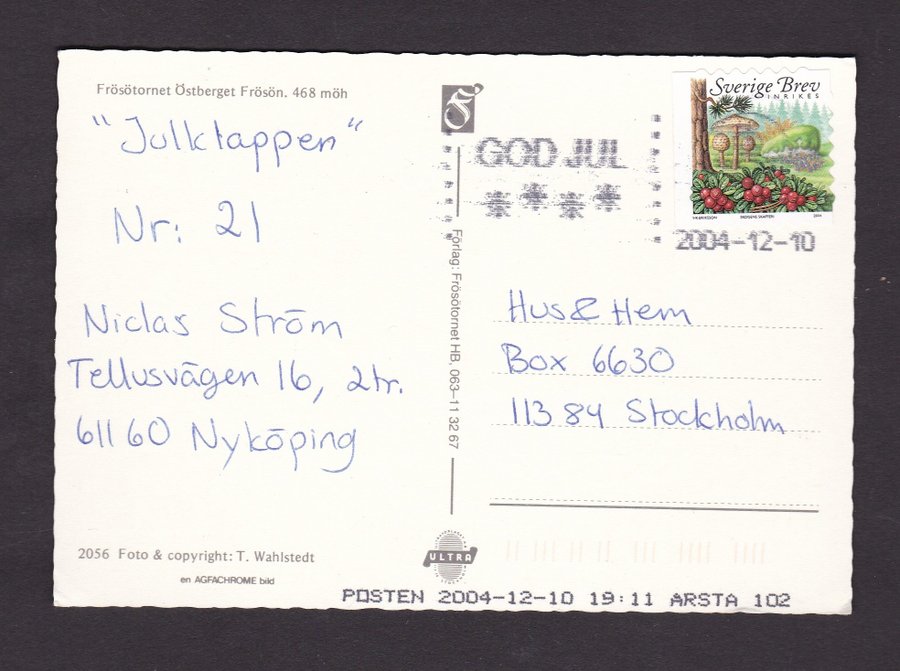 Frösötornet Östberget Frösön. 468 möh
"Julklappen"
Nr: 21
Niclas Ström
Tellusvägen 16, 2tr.
611 60 Nyköping
2056 Foto & copyright: T. Wahlstedt
en AGFACHROME bild
Förlag: Frösötornet HB, 063-11 32 67
ULTRA
GOD JUL
****
Sverige Brev
INRIKES
2004-12-10
Hus & Hem
Box 6630
113 84 Stockholm
POSTEN 2004-12-10 19:11 ÅRSTA 102